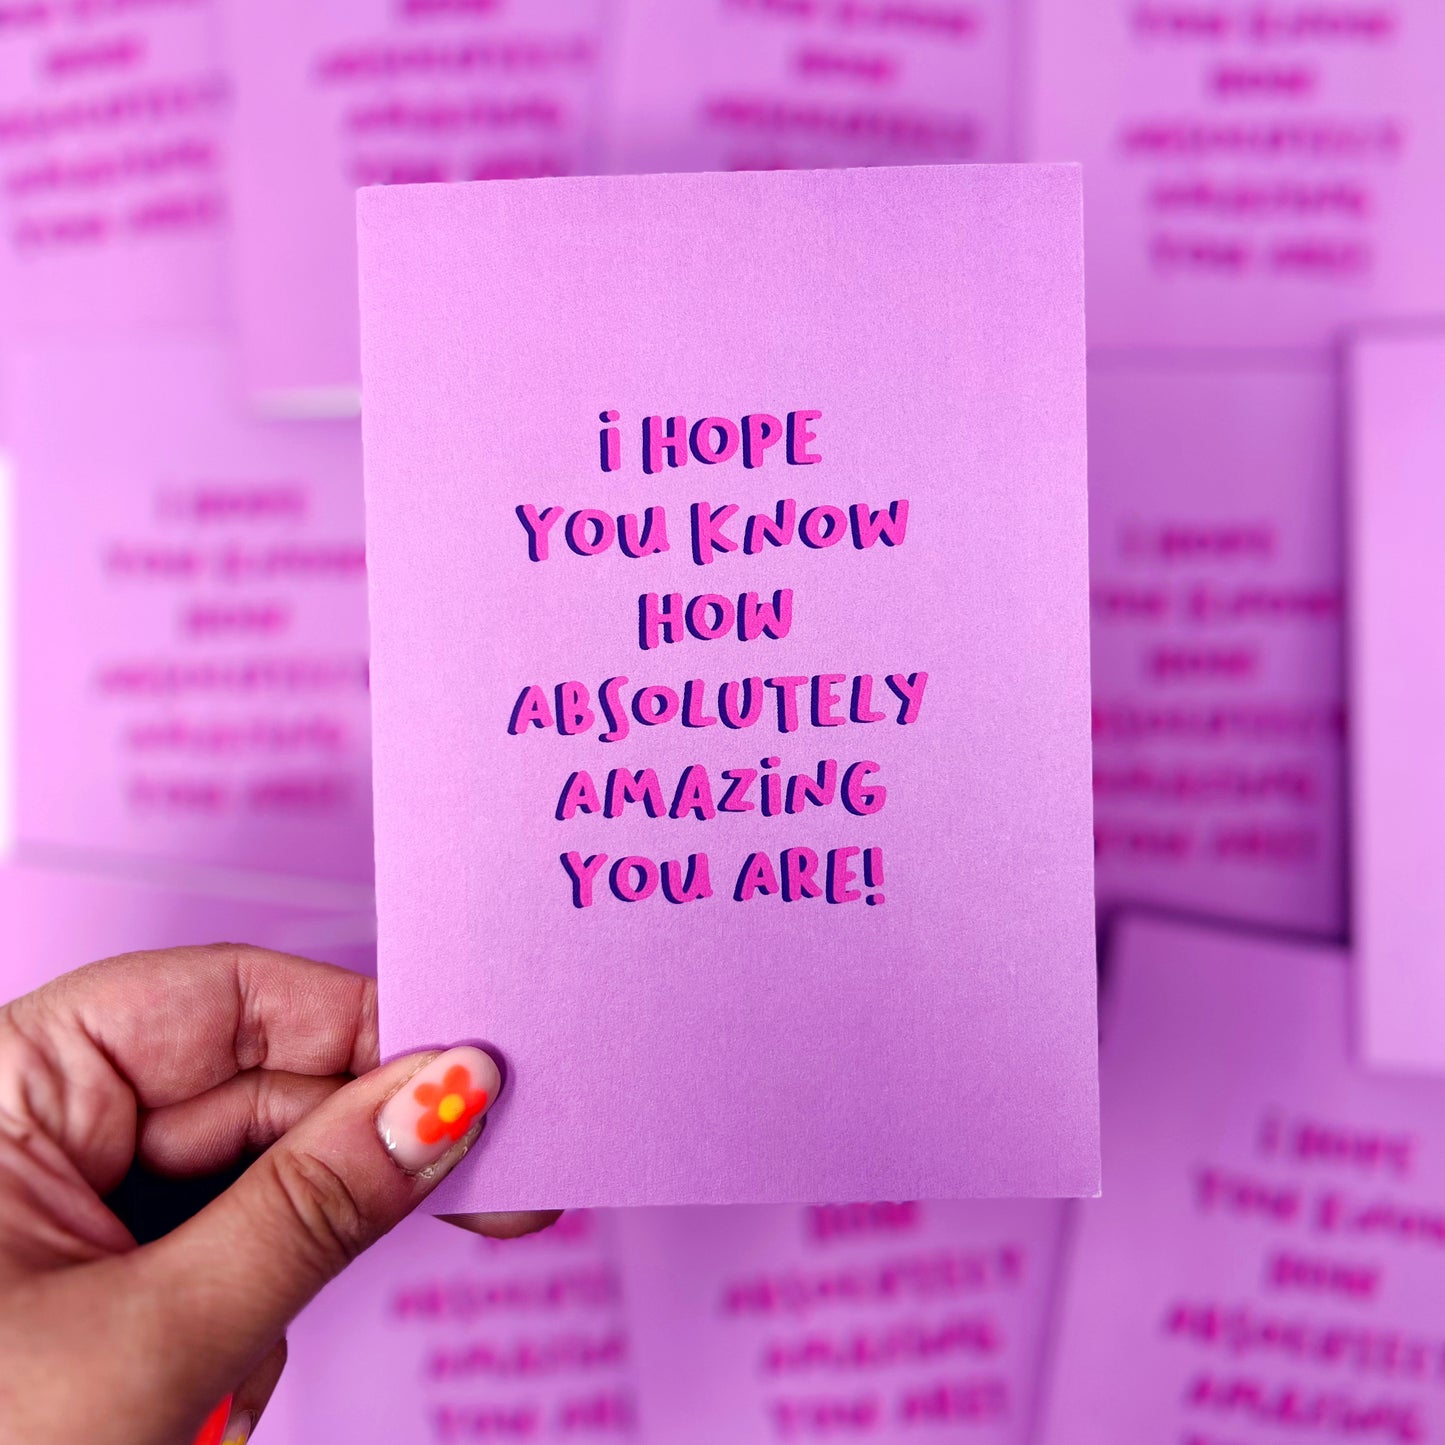 i HOPE
YOU KNOW
HOW
ABSOLUTELY
AMAZiNG
YOU ARE!